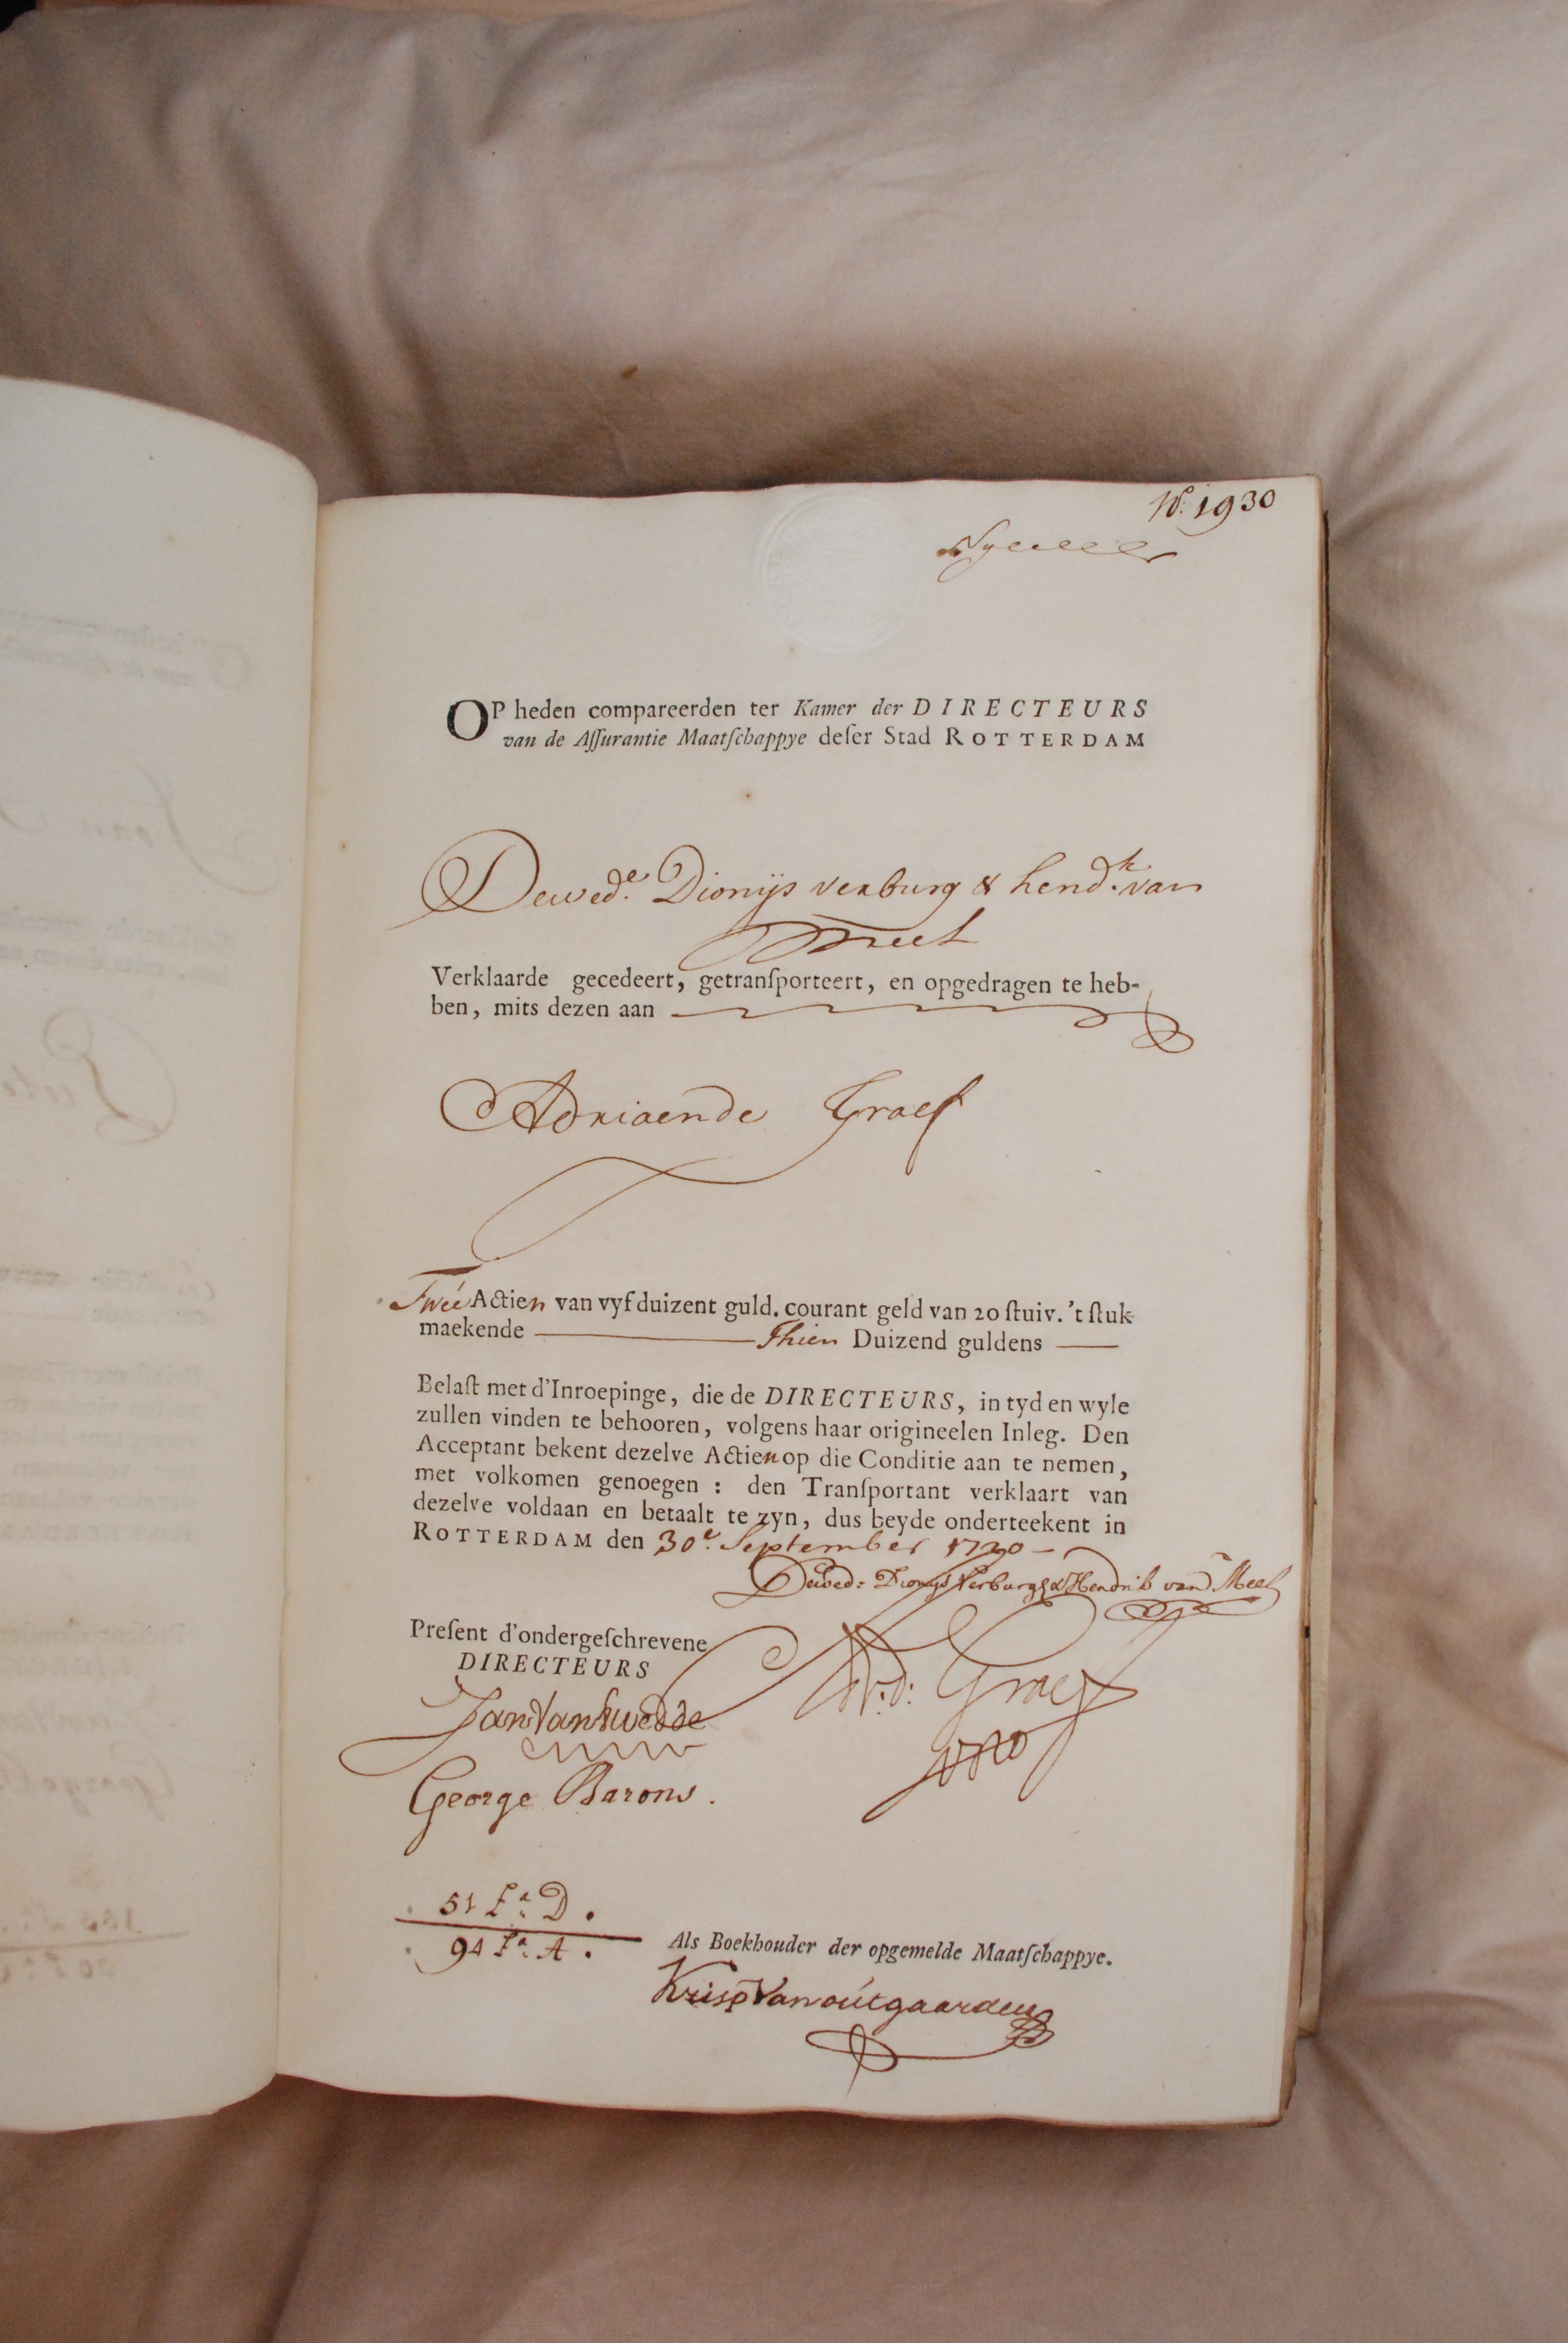 No. 1930
OP heden compareerden ter Kamer der DIRECTEURS
van de Aſſurantie Maatſchappye deſer Stad ROTTERDAM
De wed.e Dionijs verburg & hend.k van
Meel
Verklaarde gecedeert, getranſporteert, en opgedragen te heb-
ben, mits dezen aan
Adriaen de Graef
Twee Actien van vyf duizent guld. courant geld van 20 ſtuiv. 't ſtuk
maekende Thien Duizend guldens
Belaſt met d'Inroepinge, die de DIRECTEURS, in tyd en wyle
zullen vinden te behooren, volgens haar origineelen Inleg. Den
Acceptant bekent dezelve Actien op die Conditie aan te nemen,
met volkomen genoegen: den Tranſportant verklaart van
dezelve voldaan en betaalt te zyn, dus beyde onderteekent in
ROTTERDAM den 30e. September 1720
De wed: Dionys Verburg & Hendrik van Meel
Preſent d'ondergeſchrevene
DIRECTEURS
A: d: Graef
George Barons.
51 Fa. D.
94 Fa. A.
Als Boekhouder der opgemelde Maatſchappye.